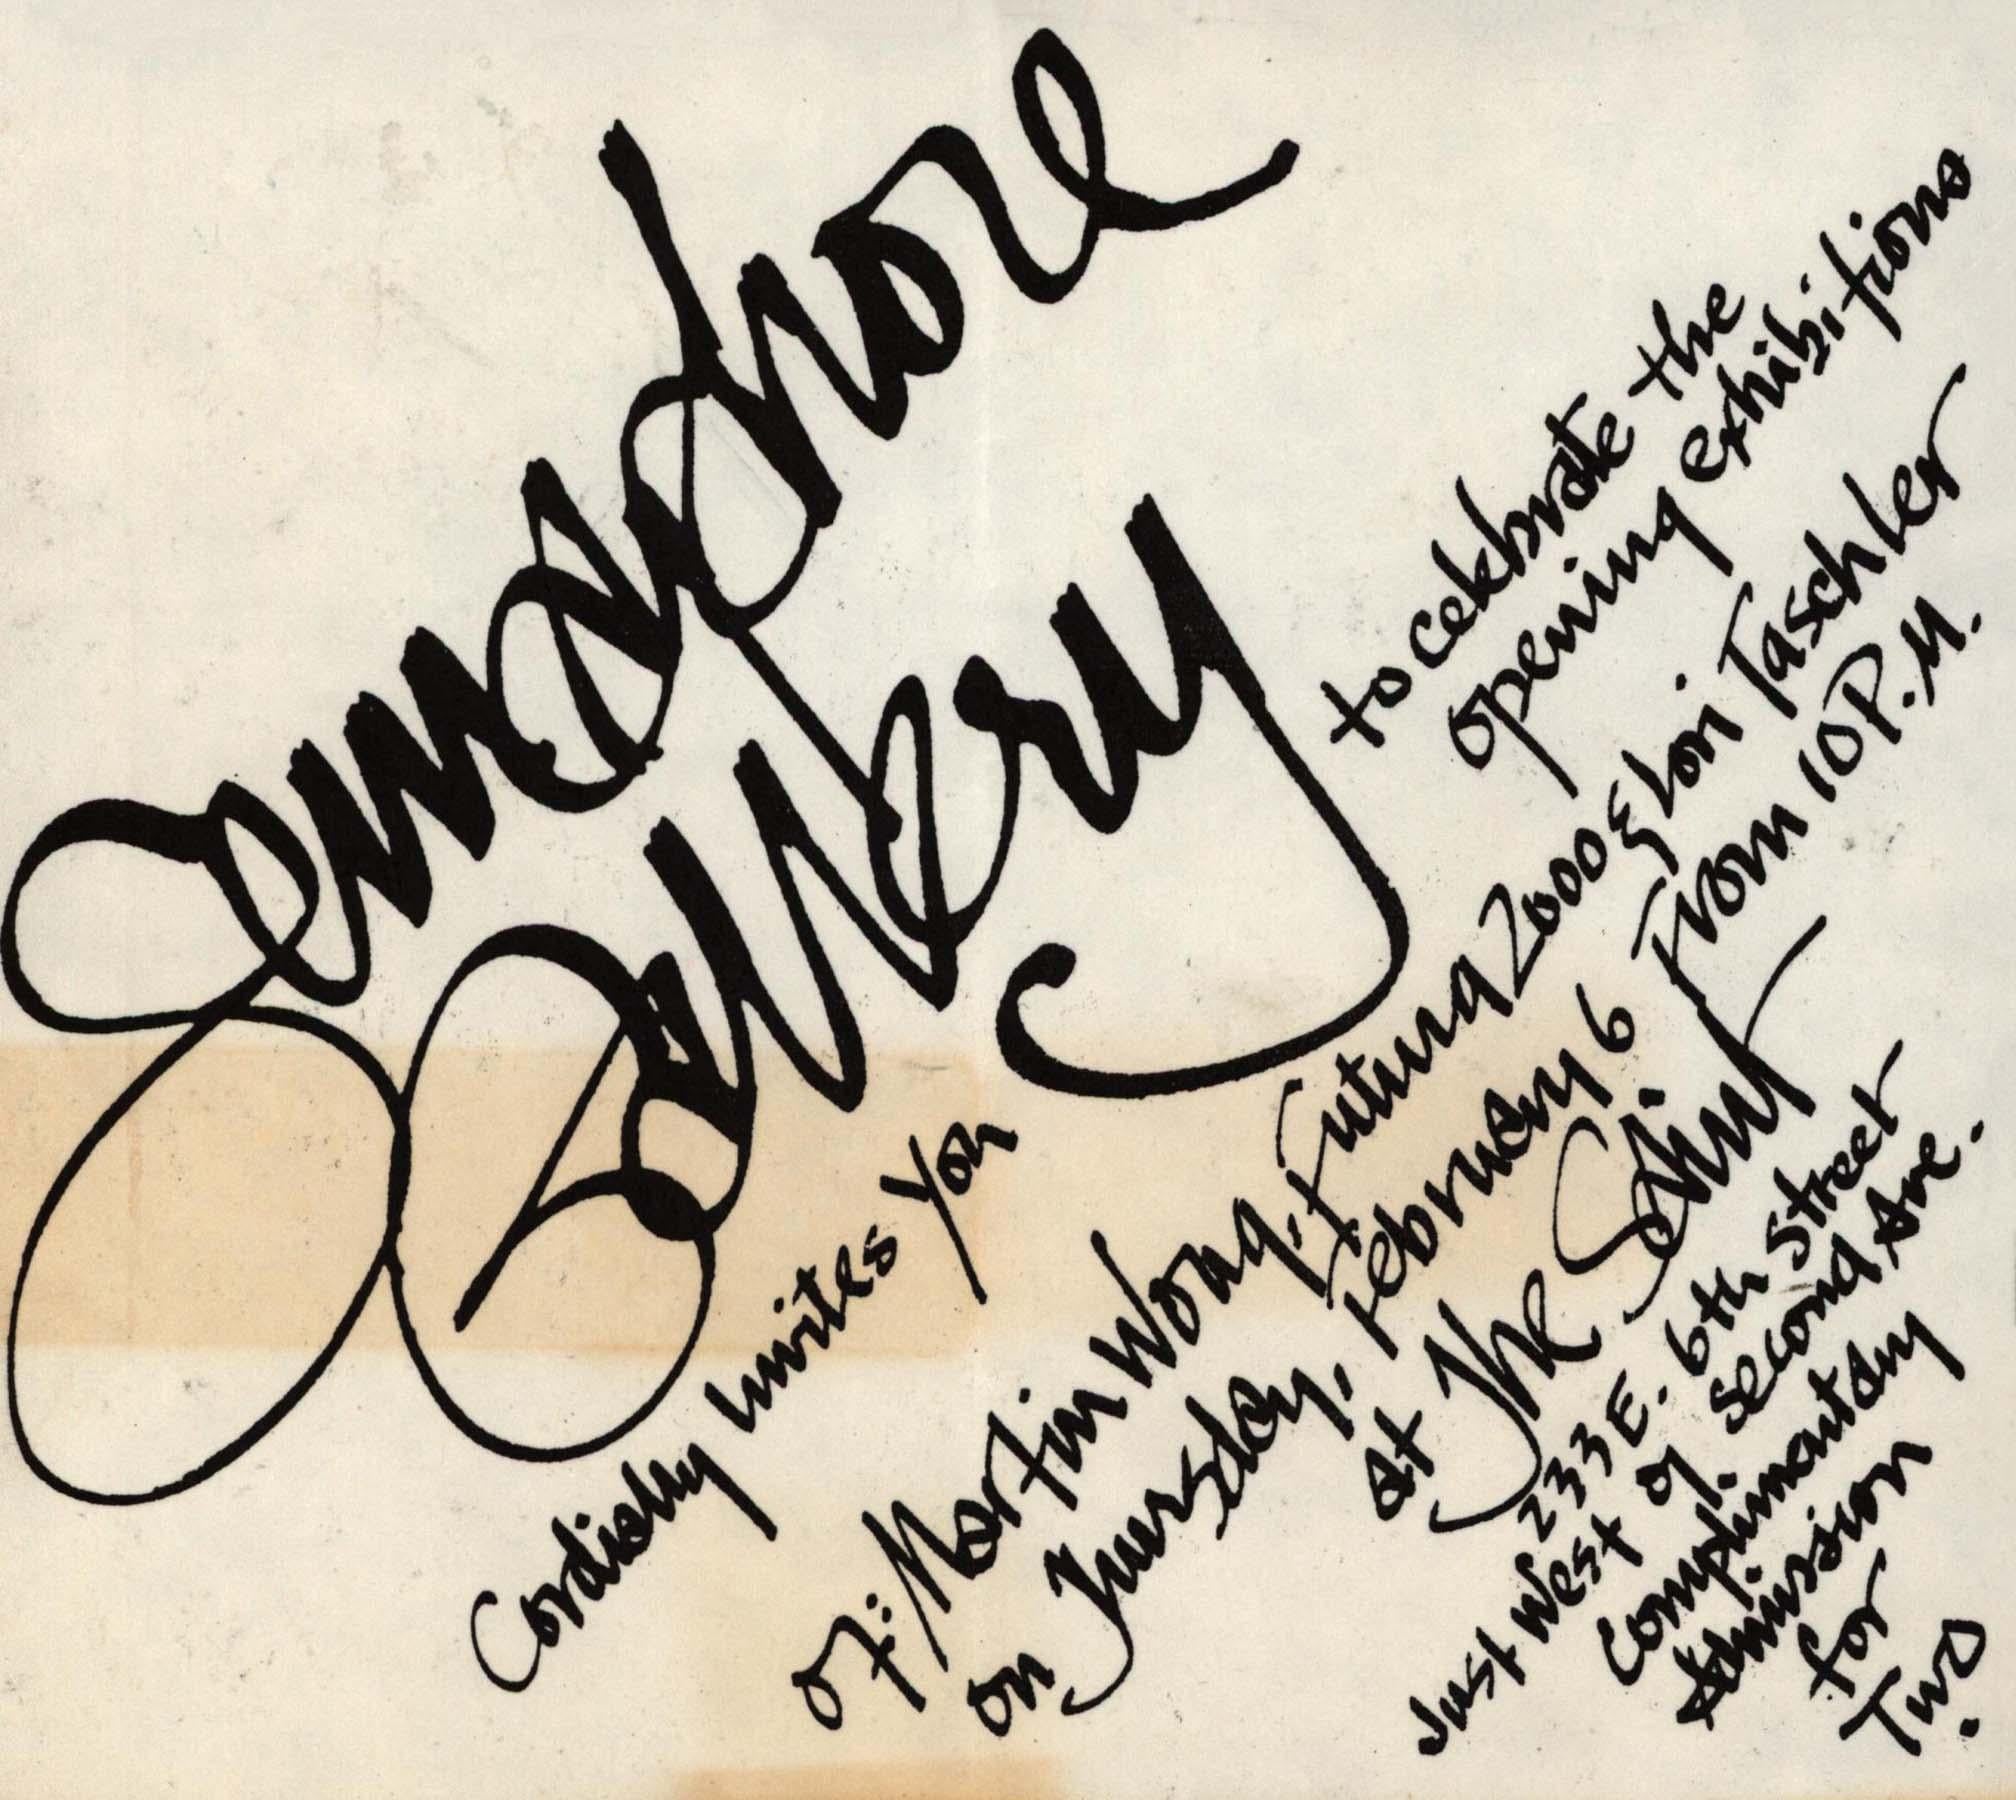 Semaphore
Gallery
Cordially invites You
to celebrate the
opening exhibitions
of: Martin Wong, Futura 2000 & Lori Taschler
on Thursday, February 6 From 10 P.M.
at The Saint
233 E. 6th street
Just West of Second Ave.
Complimentary
Admission
for
Two.